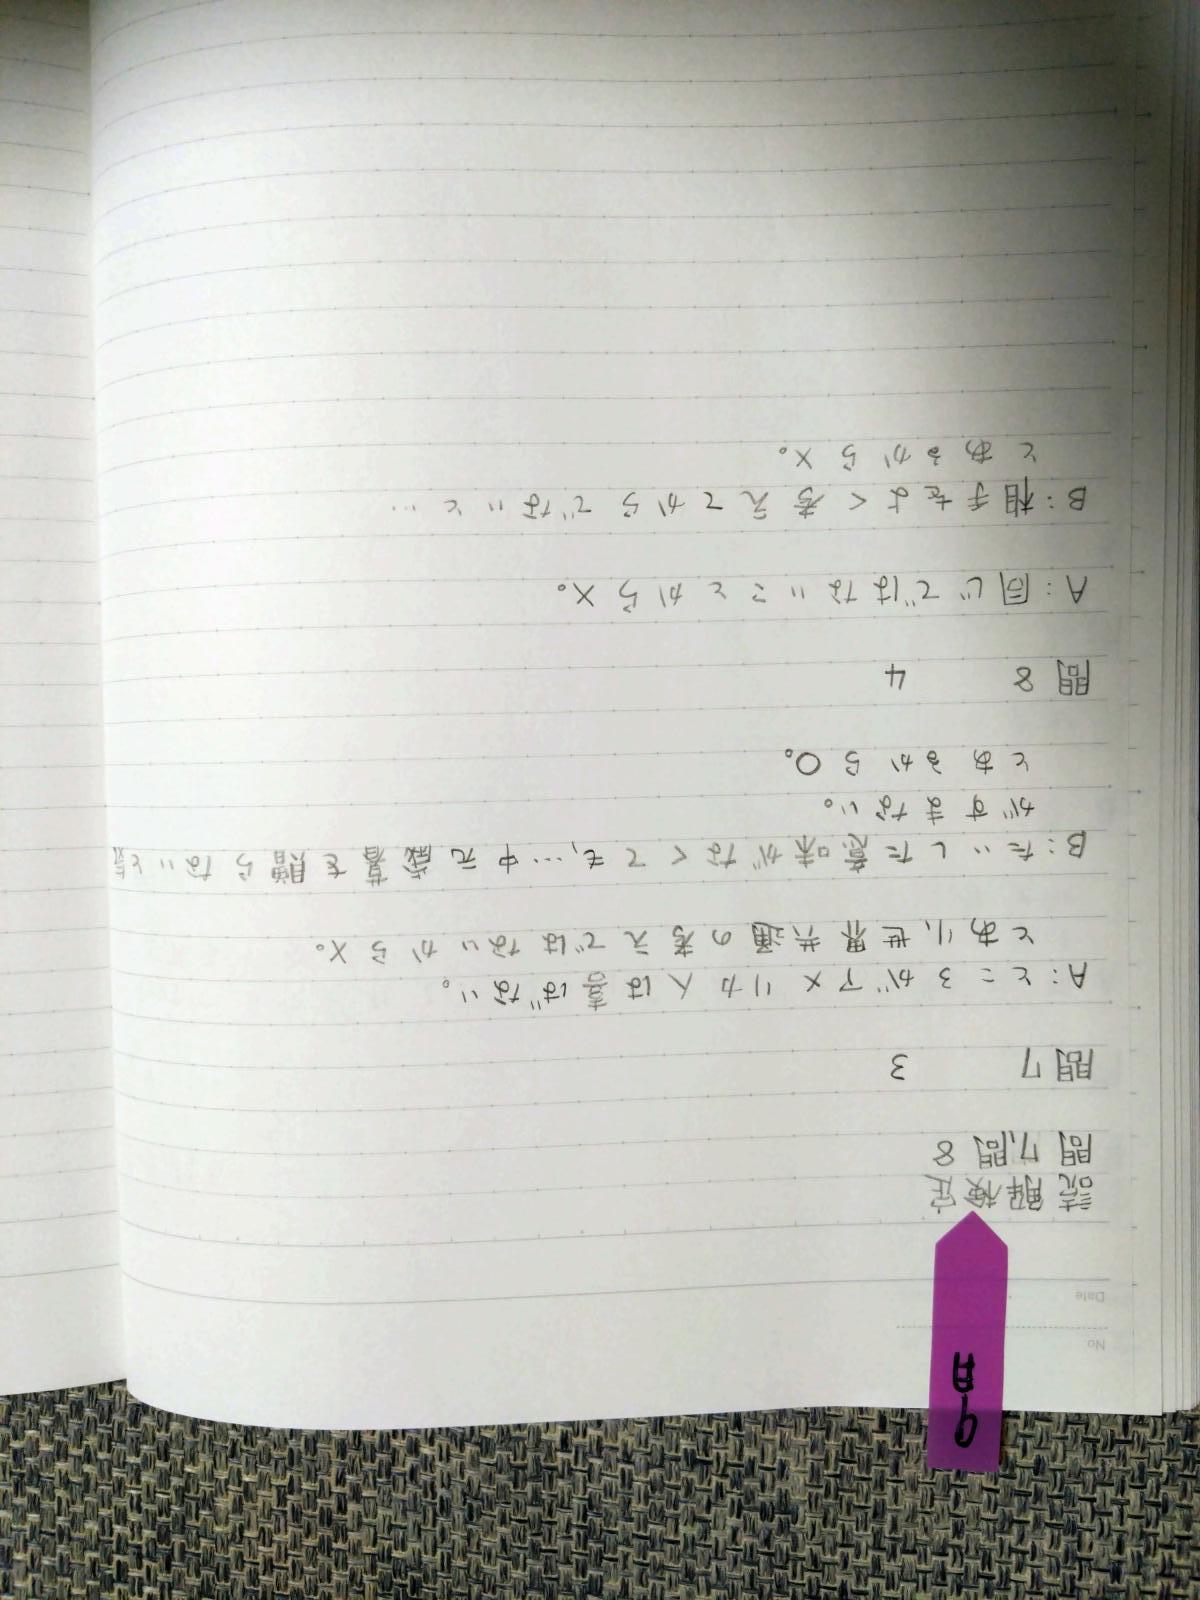 9日
No
Date
読解検定
問7,問8
問7 3
A:ところがアメリカ人は喜ばない。
とあり、世界共通の考えではないから×。
B:たいした意味がなくても,…中元歳暮を贈らないと気
がすまない。
とあるから○。
問8 4
A:同じではないことから×。
B:相手をよく考えてからでないと…
とあるから×。